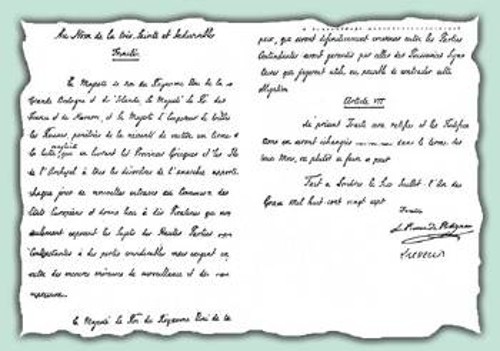 Au Nom de la très Sainte et Indivisible
Trinité
Sa Majesté le Roi du Royaume Uni de la
Grande Bretagne et d'Irlande, Sa Majesté le Roi de
France et de Navarre, et Sa Majesté l'Empereur de toutes
les Russies, pénétrées de la nécessité de mettre un terme à
la lutte sanglante qui en livrant les Provinces Grecques et les Iles
de l'Archipel à tous les désordres de l'anarchie apporte
chaque jour de nouvelles entraves au Commerce des
Etats Européens et donne lieu à des Pirateries qui non
seulement exposent les Sujets des Hautes Parties
Contractantes à des pertes considérables mais exigent en
outre des mesures de surveillance et de
Sa Majesté le Roi du Royaume Uni de la
paix, qui seront définitivement convenus entre les Parties
Contractantes seront garantis par celles des Puissances Signa
taires que jugeront utile, ou possible de contracter cette
obligation
Article VII
Le présent Traité sera ratifié et les Ratifica
tions en seront échangées dans le terme de
deux Mois, ou plutôt si faire se peut
Fait à Londres le Six Juillet l'An de
Grace Mil huit cent vingt sept